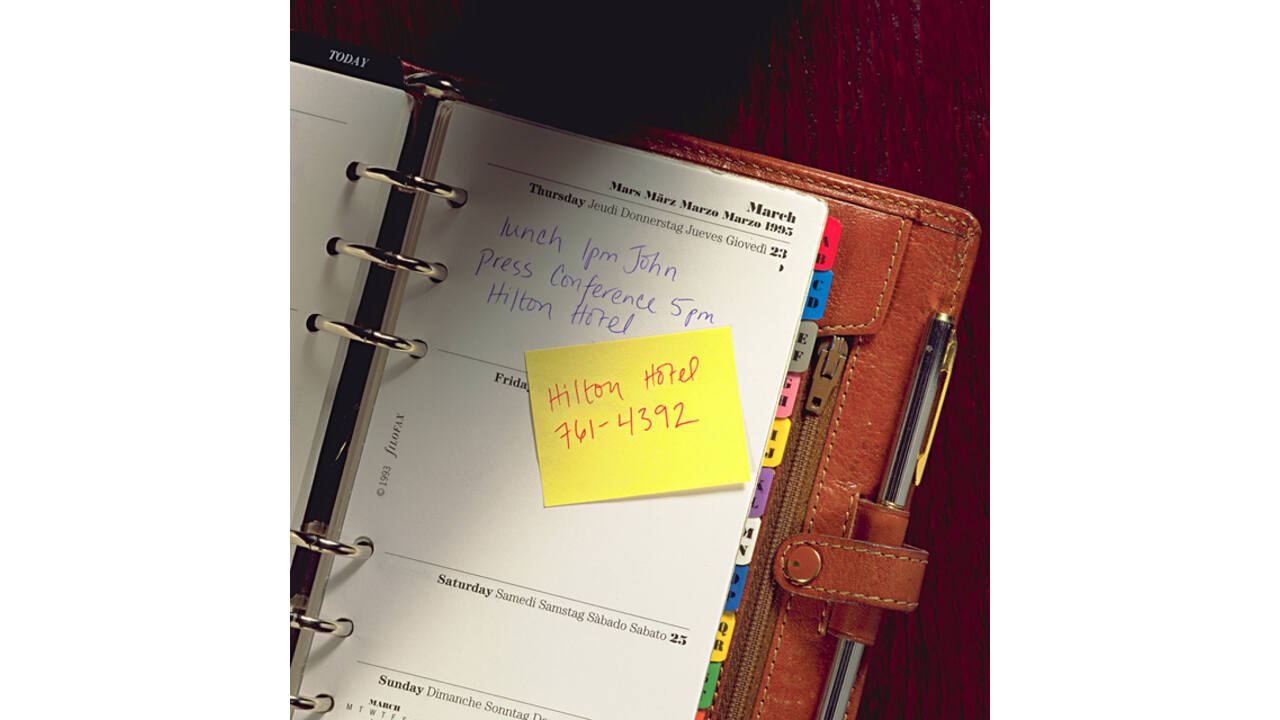 TODAY
March
Mars März Marzo Marzo 1995
Thursday Jeudi Donnerstag Jueves Giovedì 23
lunch 1pm John
Press Conference 5pm
Hilton Hotel
Hilton Hotel
761-4392
© 1993 FILOFAX
Saturday Samedi Samstag Sàbado Sabato 25
Sunday Dimanche Sonntag
MARCH
M T W T F
A
B
C
D
E
F
H
I
J
K
L
M
N
Q
R